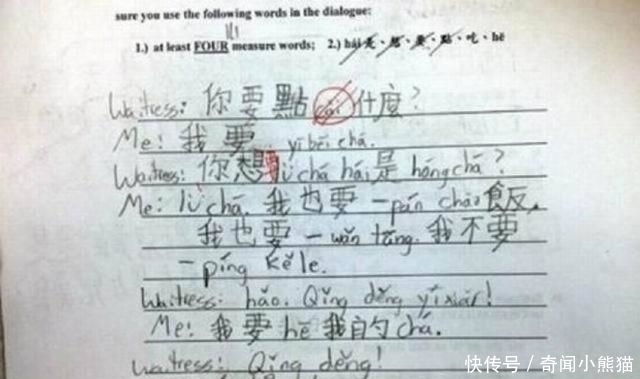 sure you use the following words in the dialogue:
1.) at least FOUR measure words; 2.) hái 是、想、要、點、吃、hē
Waitress: 你要點 cài 什麼?
Me: 我要 yī bēi chá.
Waitress: 你想 lǜ chá hái 是 hóng chá?
Me: lǜ chá. 我也要一 pán chǎo 飯,
我也要一 wǎn tāng. 我不要
一 píng kě lè.
Waitress: hǎo. Qǐng děng yíxiàr!
Me: 我要 hē 我自勺 chá.
Waitress: Qǐng děng!
快传号/奇闻小熊猫